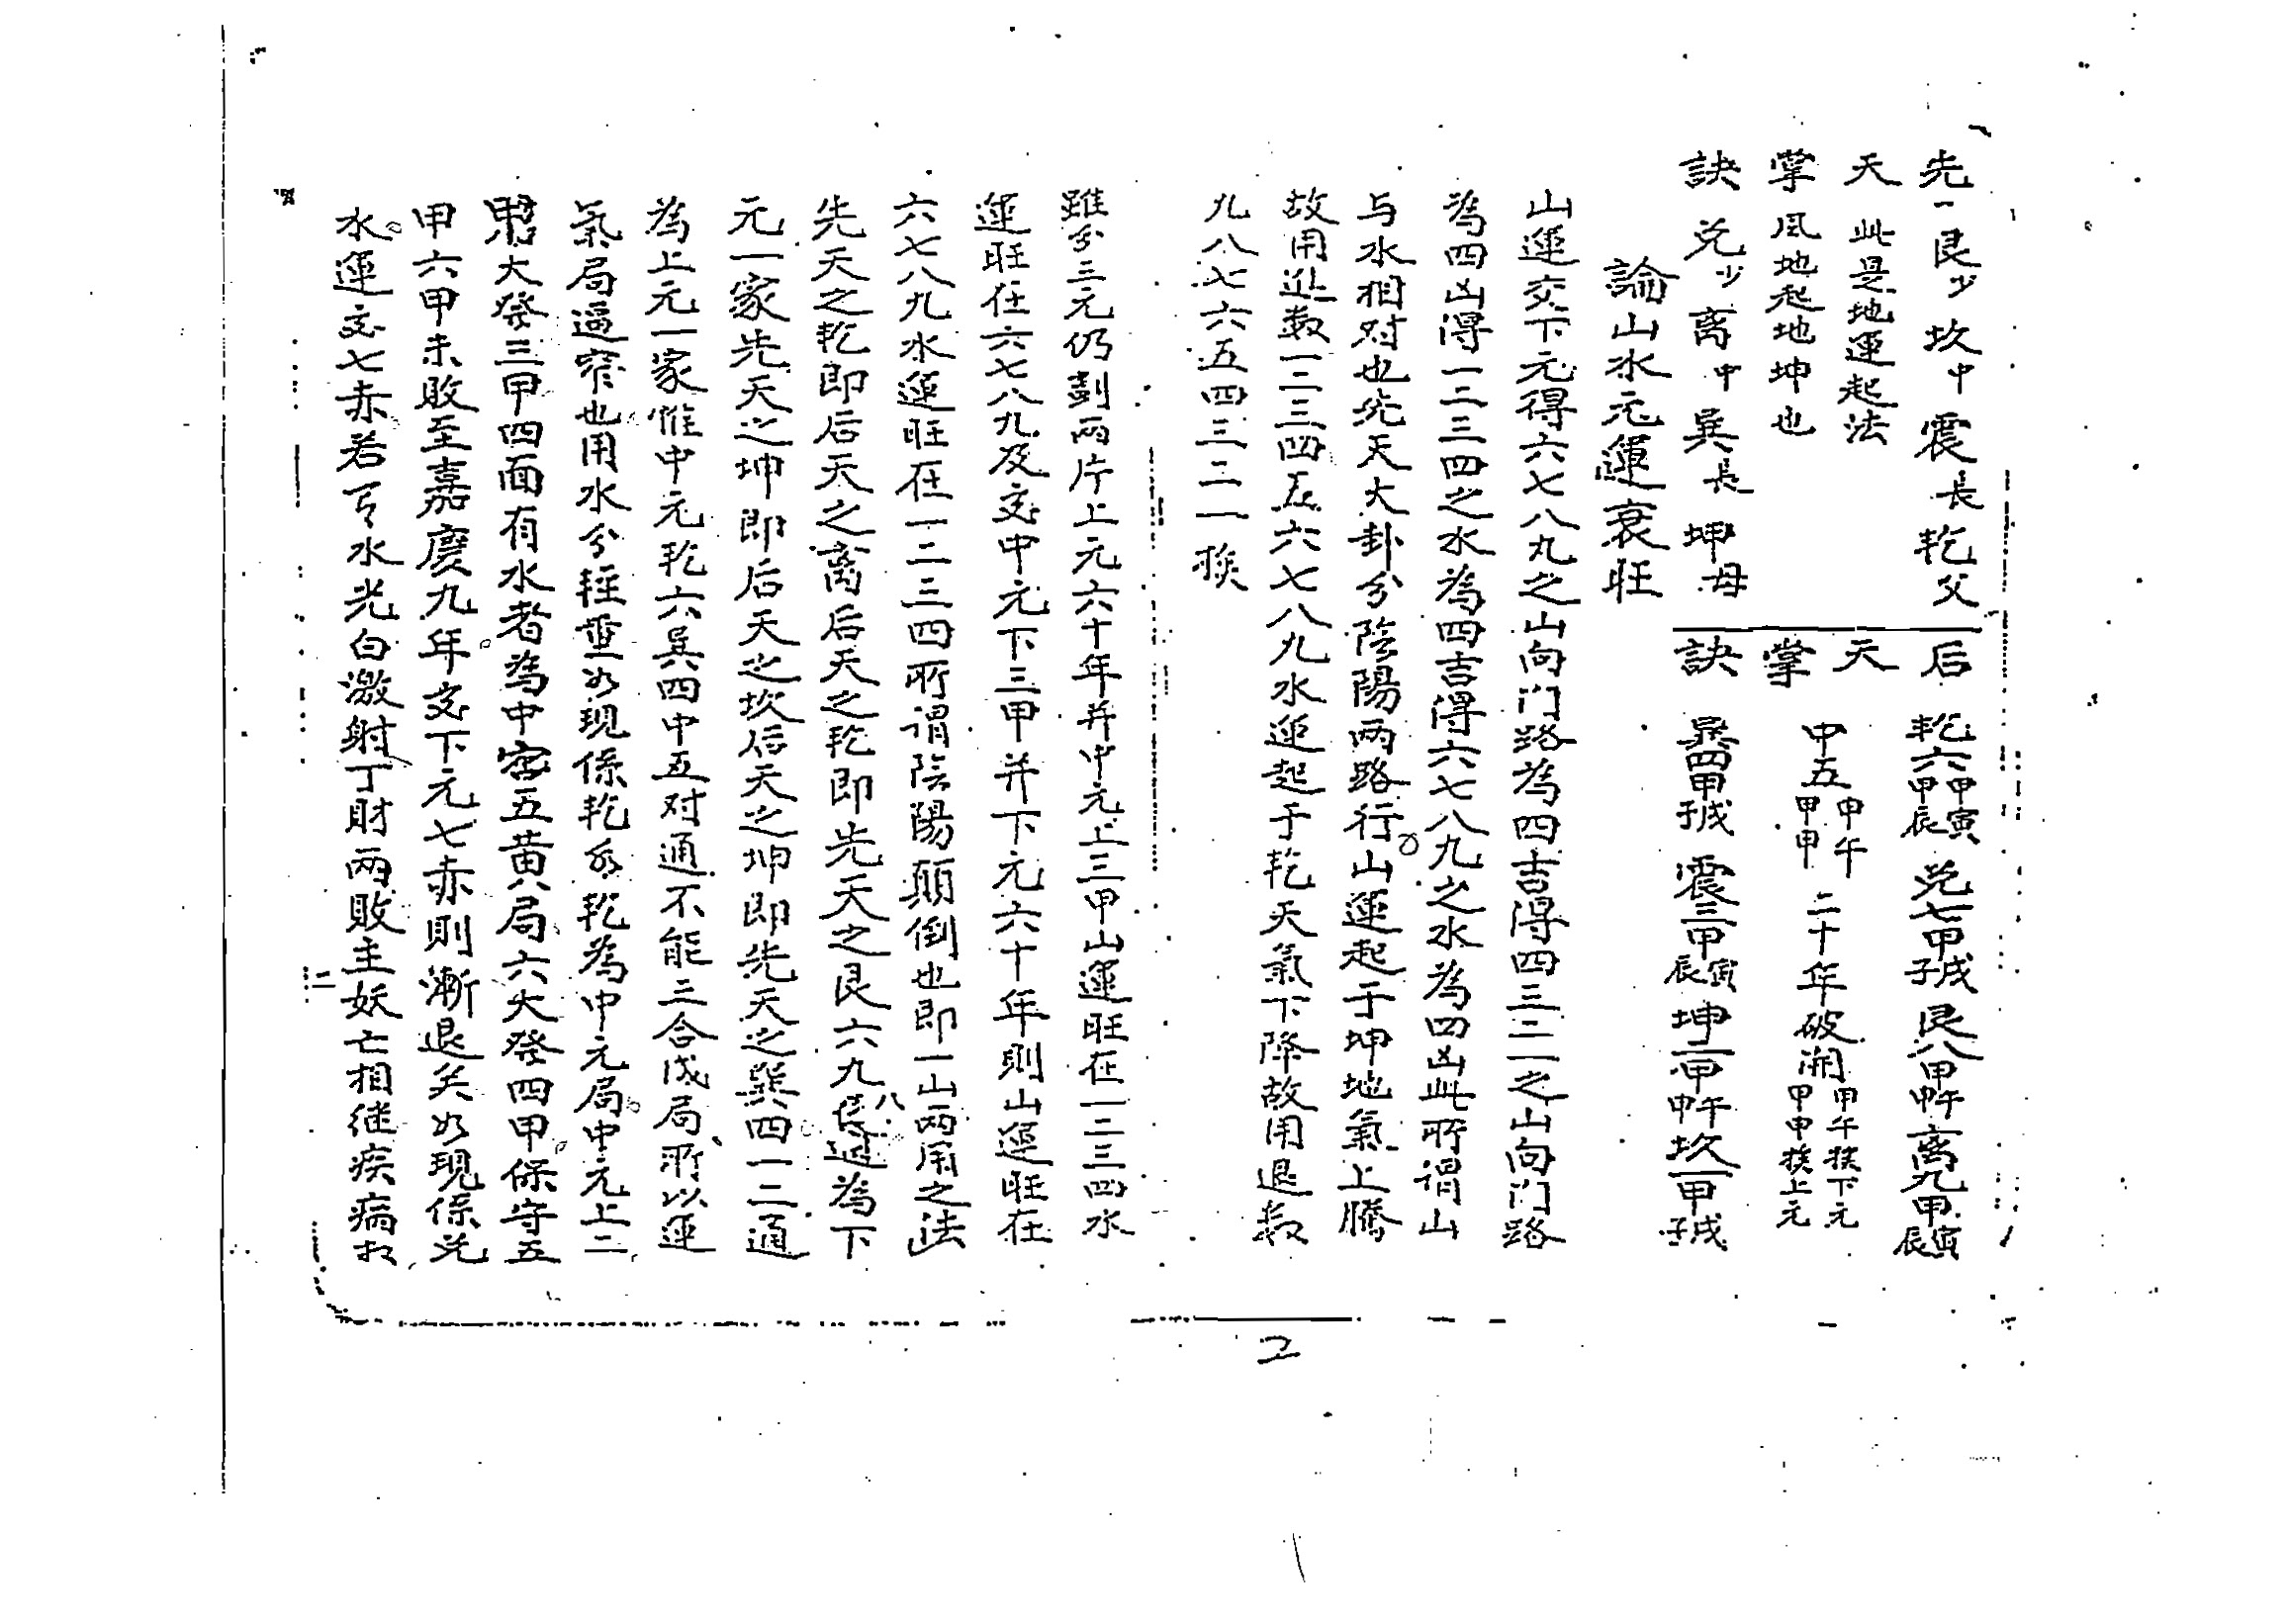 先一艮少 坎中 震長 乾父
天 此是地運起法
掌 风地起地坤也
訣 兌少 离中 巽長 坤母
后 乾六甲寅甲辰 兌七甲戌子 艮八甲午申 离九甲寅辰
天 中五甲午甲申 二十年破開甲午族下元甲申族上元
掌
訣 巽四甲戌子 震三甲寅辰 坤二甲午申 坎一甲戌子
論山水元運衰旺
山運交下元得六七八九之山向门路為四吉得四三二一之山向门路
為四凶得一二三四之水為四吉得六七八九之水為四凶此所謂山
与水相对也先天大卦分陰陽两路行山運起于坤地氣上騰
故用進数一二三四五六七八九水運起于乾天氣下降故用退数
九八七六五四三二一族
雖分三元仍劃两片上元六十年并中元上三甲山運旺在一二三四水
運旺在六七八九及交中元下三甲并下元六十年則山運旺在
六七八九水運旺在一二三四所謂陰陽顛倒也即一山两用之法
先天之乾即后天之离后天之乾即先天之艮六九八通為下
元一家先天之坤即后天之坎后天之坤即先天之巽四一二通
為上元一家惟中元乾六巽四中五对通不能三合成局所以運
氣局逼窄也用水分輕重如現係乾水乾為中元局中元上二
甲大發三甲四面有水者為中宮五黄局六大發四甲保守五
甲六甲未敗至嘉慶九年交下元七赤則漸退矣如現係兌
水運交七赤若水光白激射丁財两敗主妖亡相継疾病
二